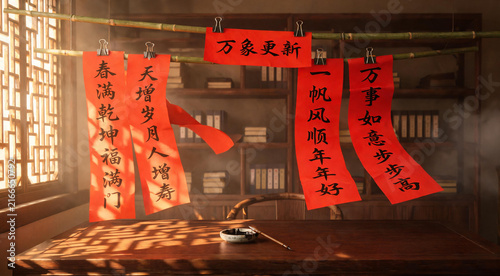 万象更新
天增岁月人增寿
春满乾坤福满门
万事如意步步高
一帆风顺年年好